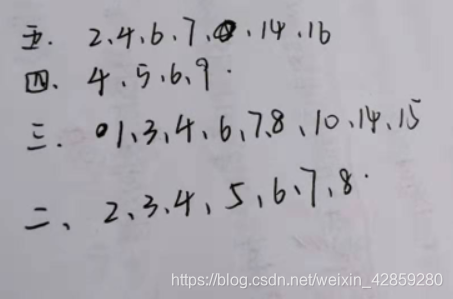 五. 2、4、6、7、、14、16
四、4、5、6、9.
三. 1、3、4、6、7、8、10、14、15
二、2、3、4、5、6、7、8.
https://blog.csdn.net/weixin_42859280